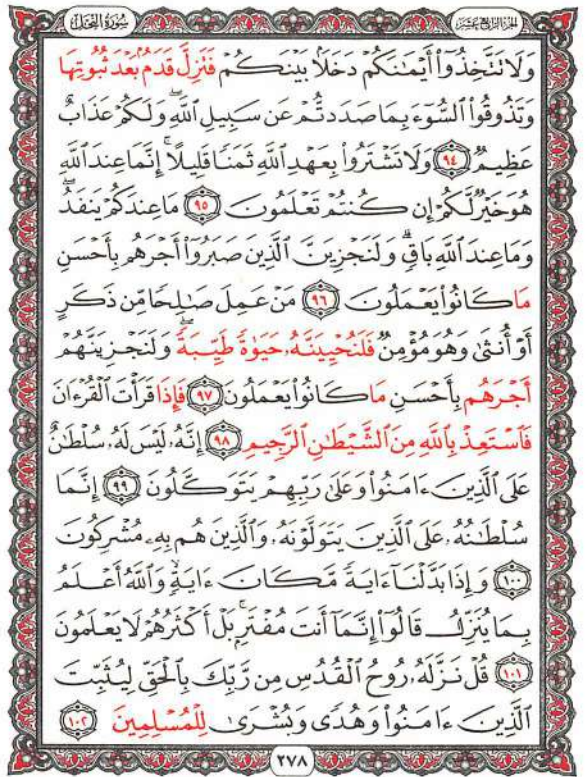 الجزء الرابع عشر سورة النحل
وَلَا تَتَّخِذُوٓا۟ أَيْمَـٰنَكُمْ دَخَلًۢا بَيْنَكُمْ فَتَزِلَّ قَدَمٌۢ بَعْدَ ثُبُوتِهَا
وَتَذُوقُوا۟ ٱلسُّوٓءَ بِمَا صَدَدتُّمْ عَن سَبِيلِ ٱللَّهِ ۖ وَلَكُمْ عَذَابٌ
عَظِيمٌ ٩٤ وَلَا تَشْتَرُوا۟ بِعَهْدِ ٱللَّهِ ثَمَنًا قَلِيلًا ۚ إِنَّمَا عِندَ ٱللَّهِ
هُوَ خَيْرٌ لَّكُمْ إِن كُنتُمْ تَعْلَمُونَ ٩٥ مَا عِندَكُمْ يَنفَدُ ۖ
وَمَا عِندَ ٱللَّهِ بَاقٍ ۗ وَلَنَجْزِيَنَّ ٱلَّذِينَ صَبَرُوٓا۟ أَجْرَهُم بِأَحْسَنِ
مَا كَانُوا۟ يَعْمَلُونَ ٩٦ مَنْ عَمِلَ صَـٰلِحًا مِّن ذَكَرٍ
أَوْ أُنثَىٰ وَهُوَ مُؤْمِنٌ فَلَنُحْيِيَنَّهُۥ حَيَوٰةً طَيِّبَةً ۖ وَلَنَجْزِيَنَّهُمْ
أَجْرَهُم بِأَحْسَنِ مَا كَانُوا۟ يَعْمَلُونَ ٩٧ فَإِذَا قَرَأْتَ ٱلْقُرْءَانَ
فَٱسْتَعِذْ بِٱللَّهِ مِنَ ٱلشَّيْطَـٰنِ ٱلرَّجِيمِ ٩٨ إِنَّهُۥ لَيْسَ لَهُۥ سُلْطَـٰنٌ
عَلَى ٱلَّذِينَ ءَامَنُوا۟ وَعَلَىٰ رَبِّهِمْ يَتَوَكَّلُونَ ٩٩ إِنَّمَا
سُلْطَـٰنُهُۥ عَلَى ٱلَّذِينَ يَتَوَلَّوْنَهُۥ وَٱلَّذِينَ هُم بِهِۦ مُشْرِكُونَ
١٠٠ وَإِذَا بَدَّلْنَآ ءَايَةً مَّكَانَ ءَايَةٍ ۙ وَٱللَّهُ أَعْلَمُ
بِمَا يُنَزِّلُ قَالُوٓا۟ إِنَّمَآ أَنتَ مُفْتَرٍۭ ۚ بَلْ أَكْثَرُهُمْ لَا يَعْلَمُونَ
١٠١ قُلْ نَزَّلَهُۥ رُوحُ ٱلْقُدُسِ مِن رَّبِّكَ بِٱلْحَقِّ لِيُثَبِّتَ
ٱلَّذِينَ ءَامَنُوا۟ وَهُدًى وَبُشْرَىٰ لِلْمُسْلِمِينَ ١٠٢
٢٧٨